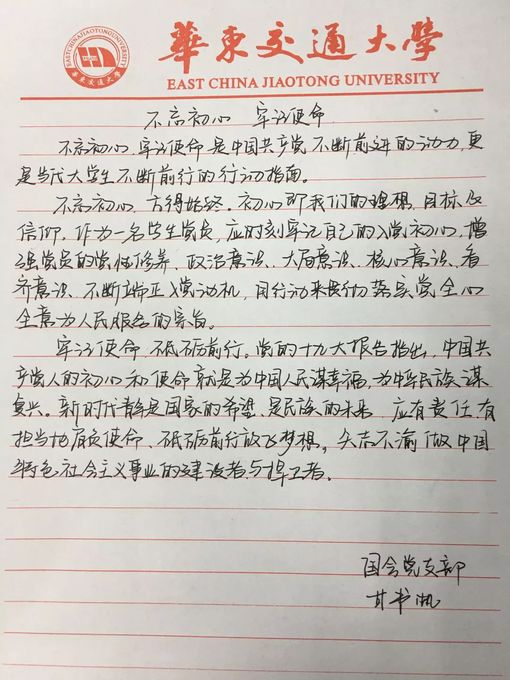 EAST CHINA JIAOTONG UNIVERSITY
華東交通大學
華東交通大學
EAST CHINA JIAOTONG UNIVERSITY
不忘初心 牢记使命
不忘初心,牢记使命是中国共产党不断前进的动力,更
是当代大学生不断前行的行动指南。
不忘初心,方得始终。初心即我们的理想、目标及
信仰,作为一名学生党员,应时刻牢记自己的入党初心,增
强党员的党性修养、政治意识、大局意识、核心意识、看
齐意识、不断端正入党动机,用行动来贯彻落实党全心
全意为人民服务的宗旨。
牢记使命,砥砺前行。党的十九大报告指出,中国共
产党人的初心和使命就是为中国人民谋幸福,为中华民族谋
复兴。新时代青年是国家的希望、是民族的未来,应有责任、有
担当地肩负使命、砥砺前行放飞梦想。矢志不渝做中国
特色社会主义事业的建设者与捍卫者。
国会党支部
甘书